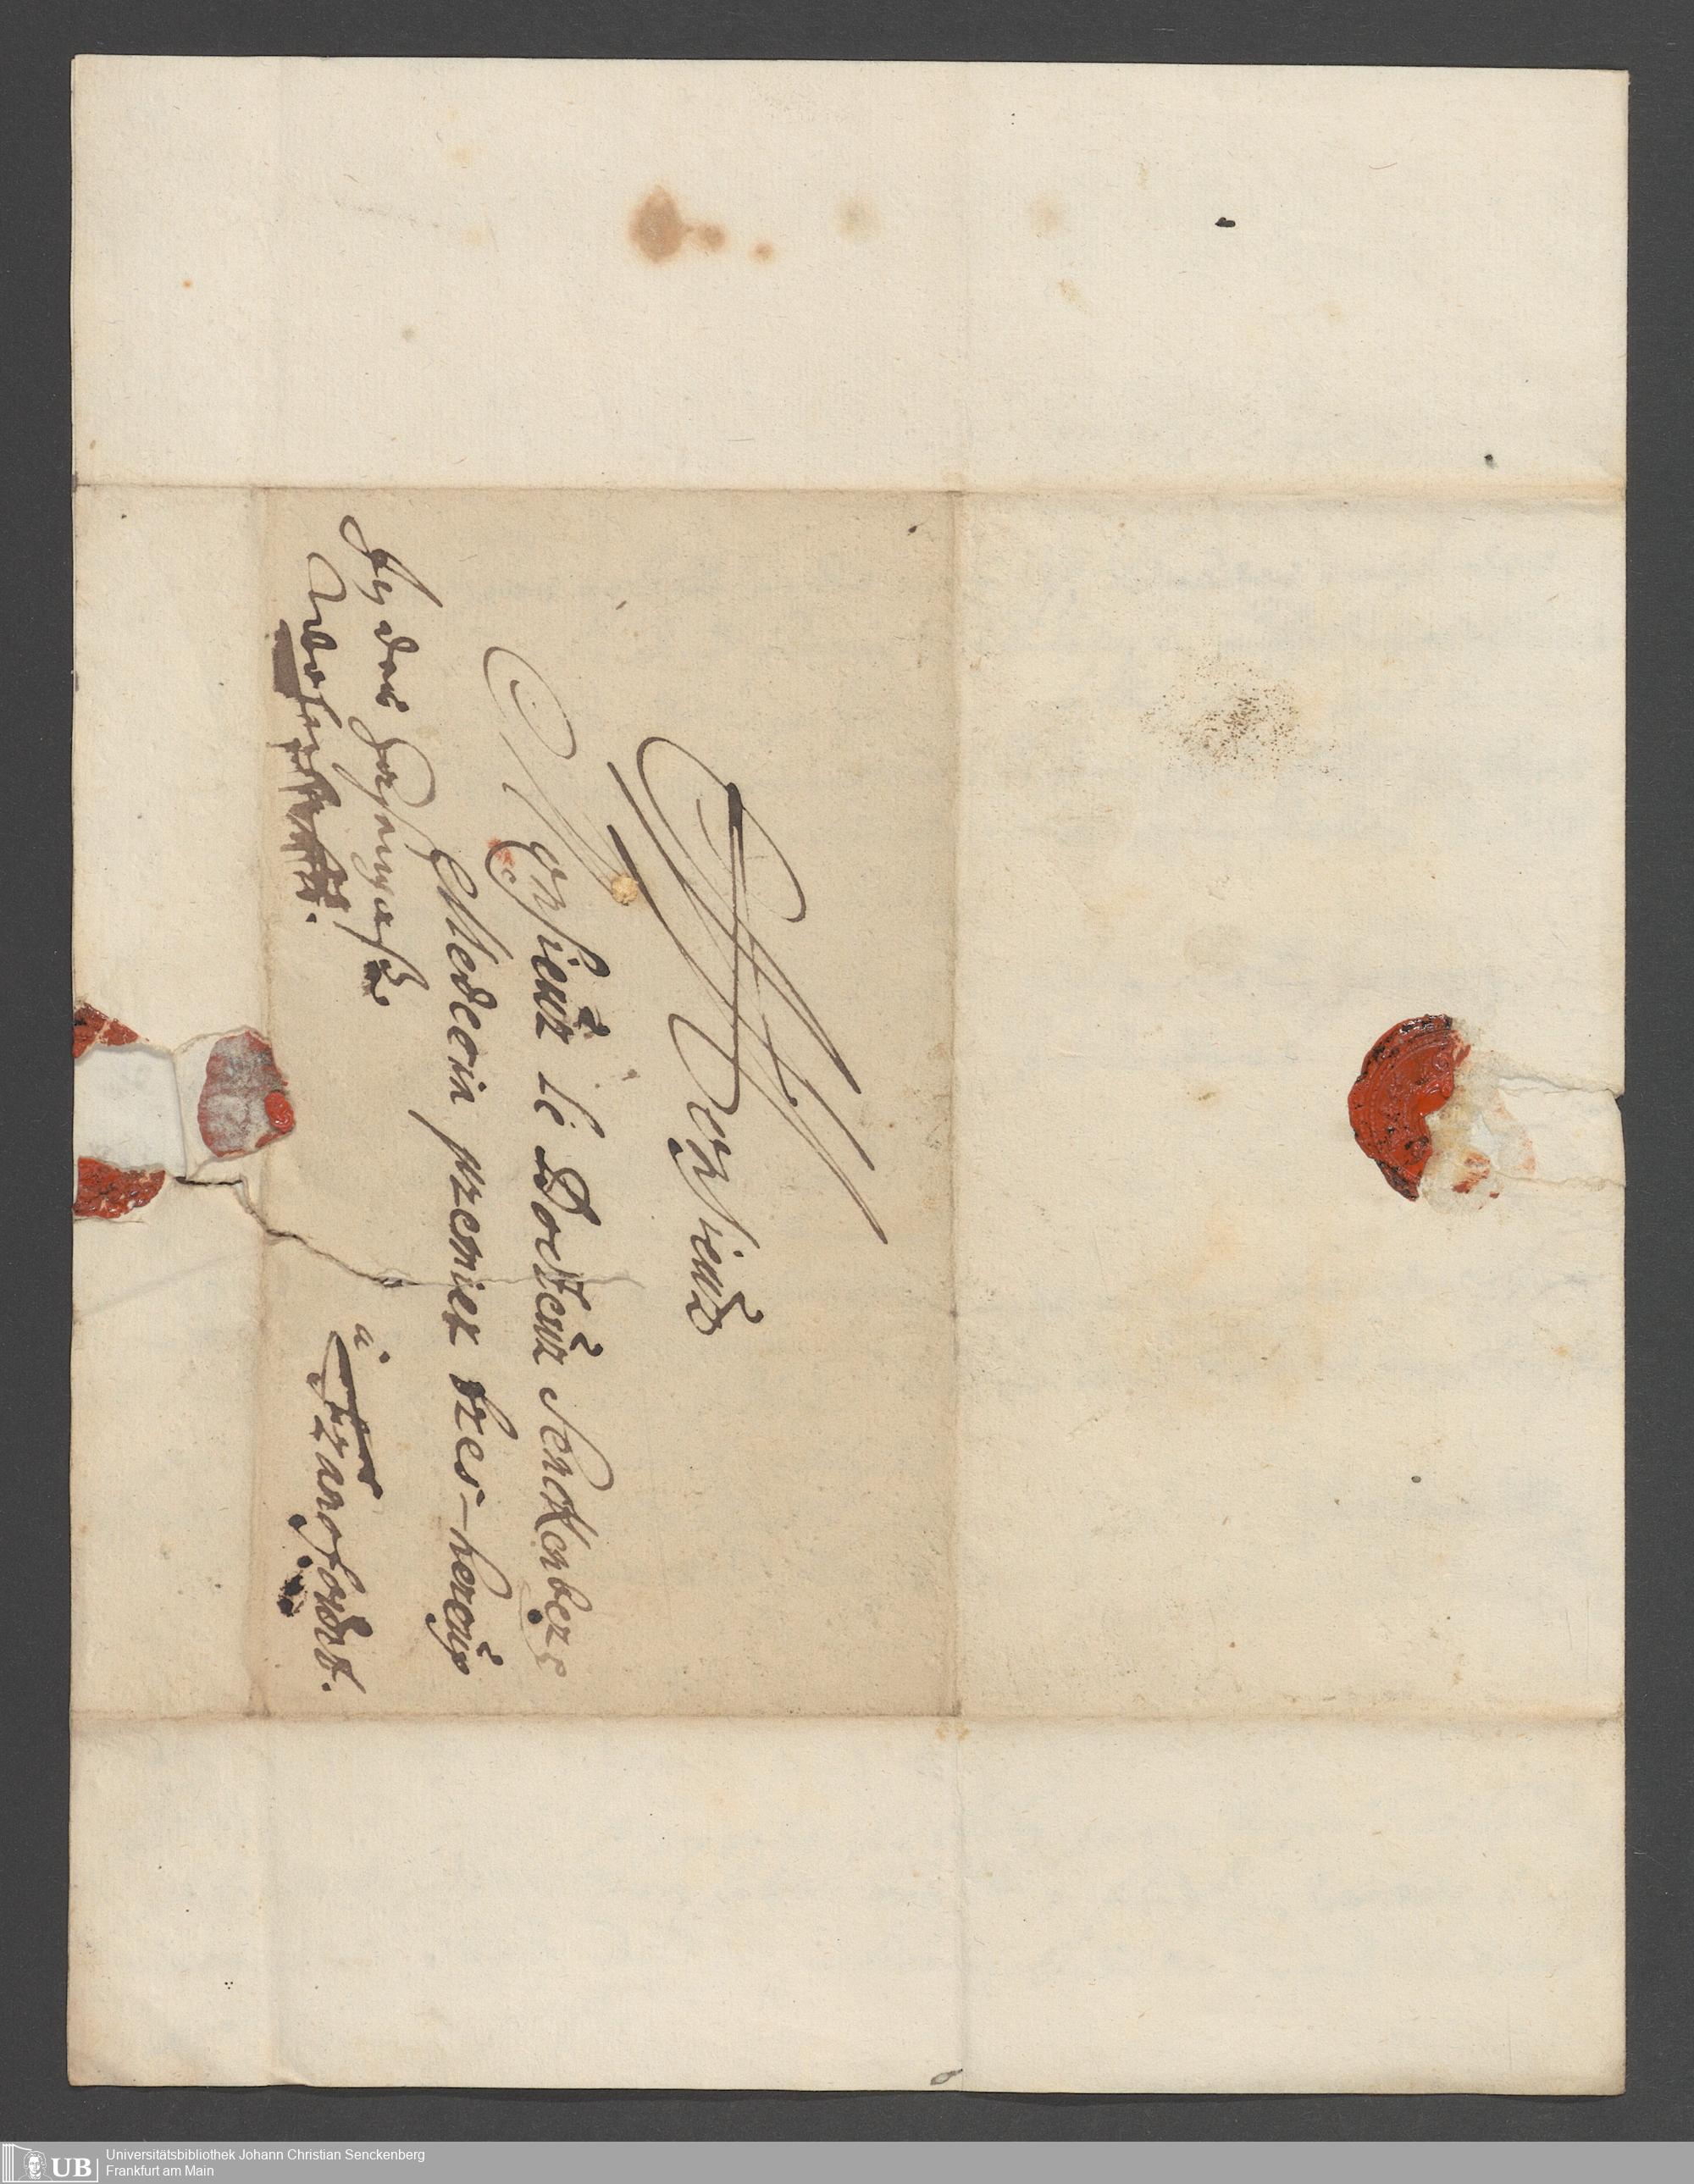 Monsieur
Monsieur le Docteur Senckenberg
Medecin premier tres-heureux
à Francfordt.
In der Hasengasse
Universitätsbibliothek Johann Christian Senckenberg
Frankfurt am Main
UB